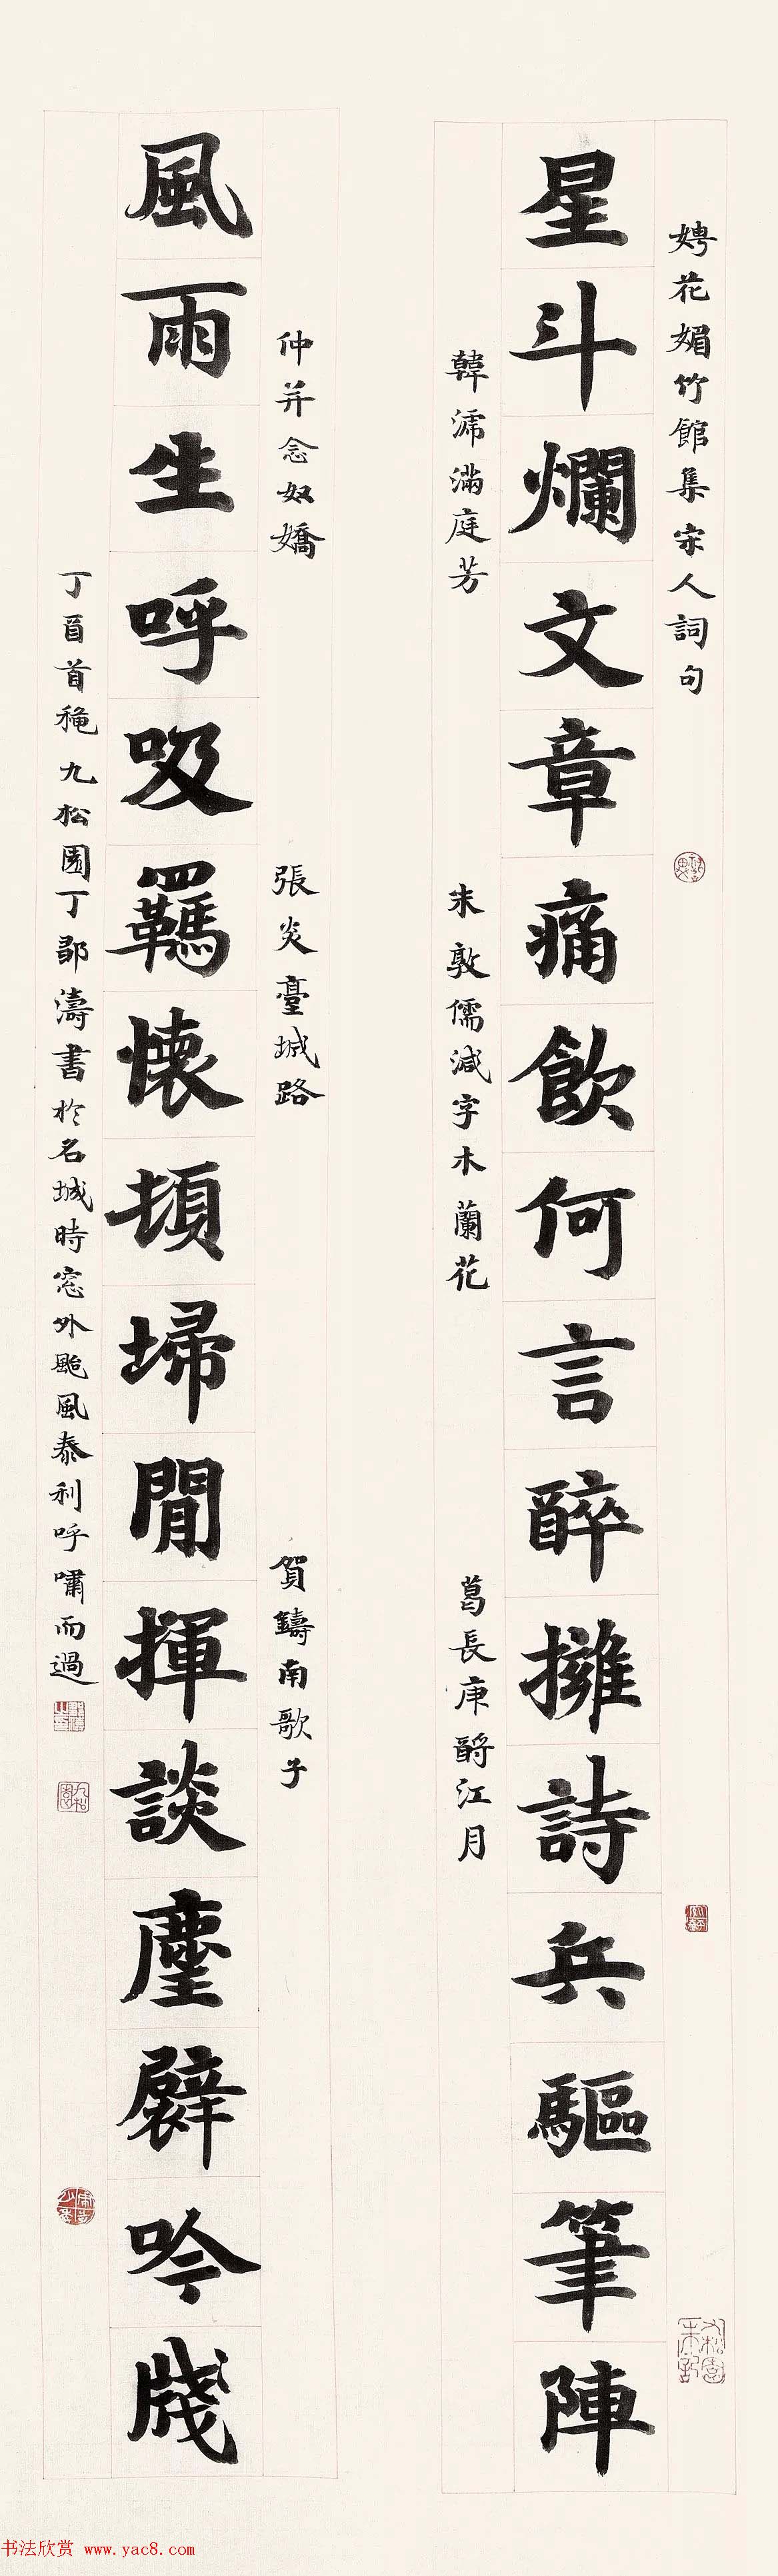 娉花媚竹館集宋人詞句
星斗爛文章痛飲何言醉擁詩兵驅筆陣
韓淲滿庭芳
朱敦儒減字木蘭花
葛長庚酹江月
仲并念奴嬌
張炎臺城路
賀鑄南歌子
風雨生呼吸羈懷頓埽閒揮談麈擘吟牋
丁酉首秋九松園丁鄭濤書於名城時窗外颱風泰利呼嘯而過
九松園
书法欣赏 www.yac8.com